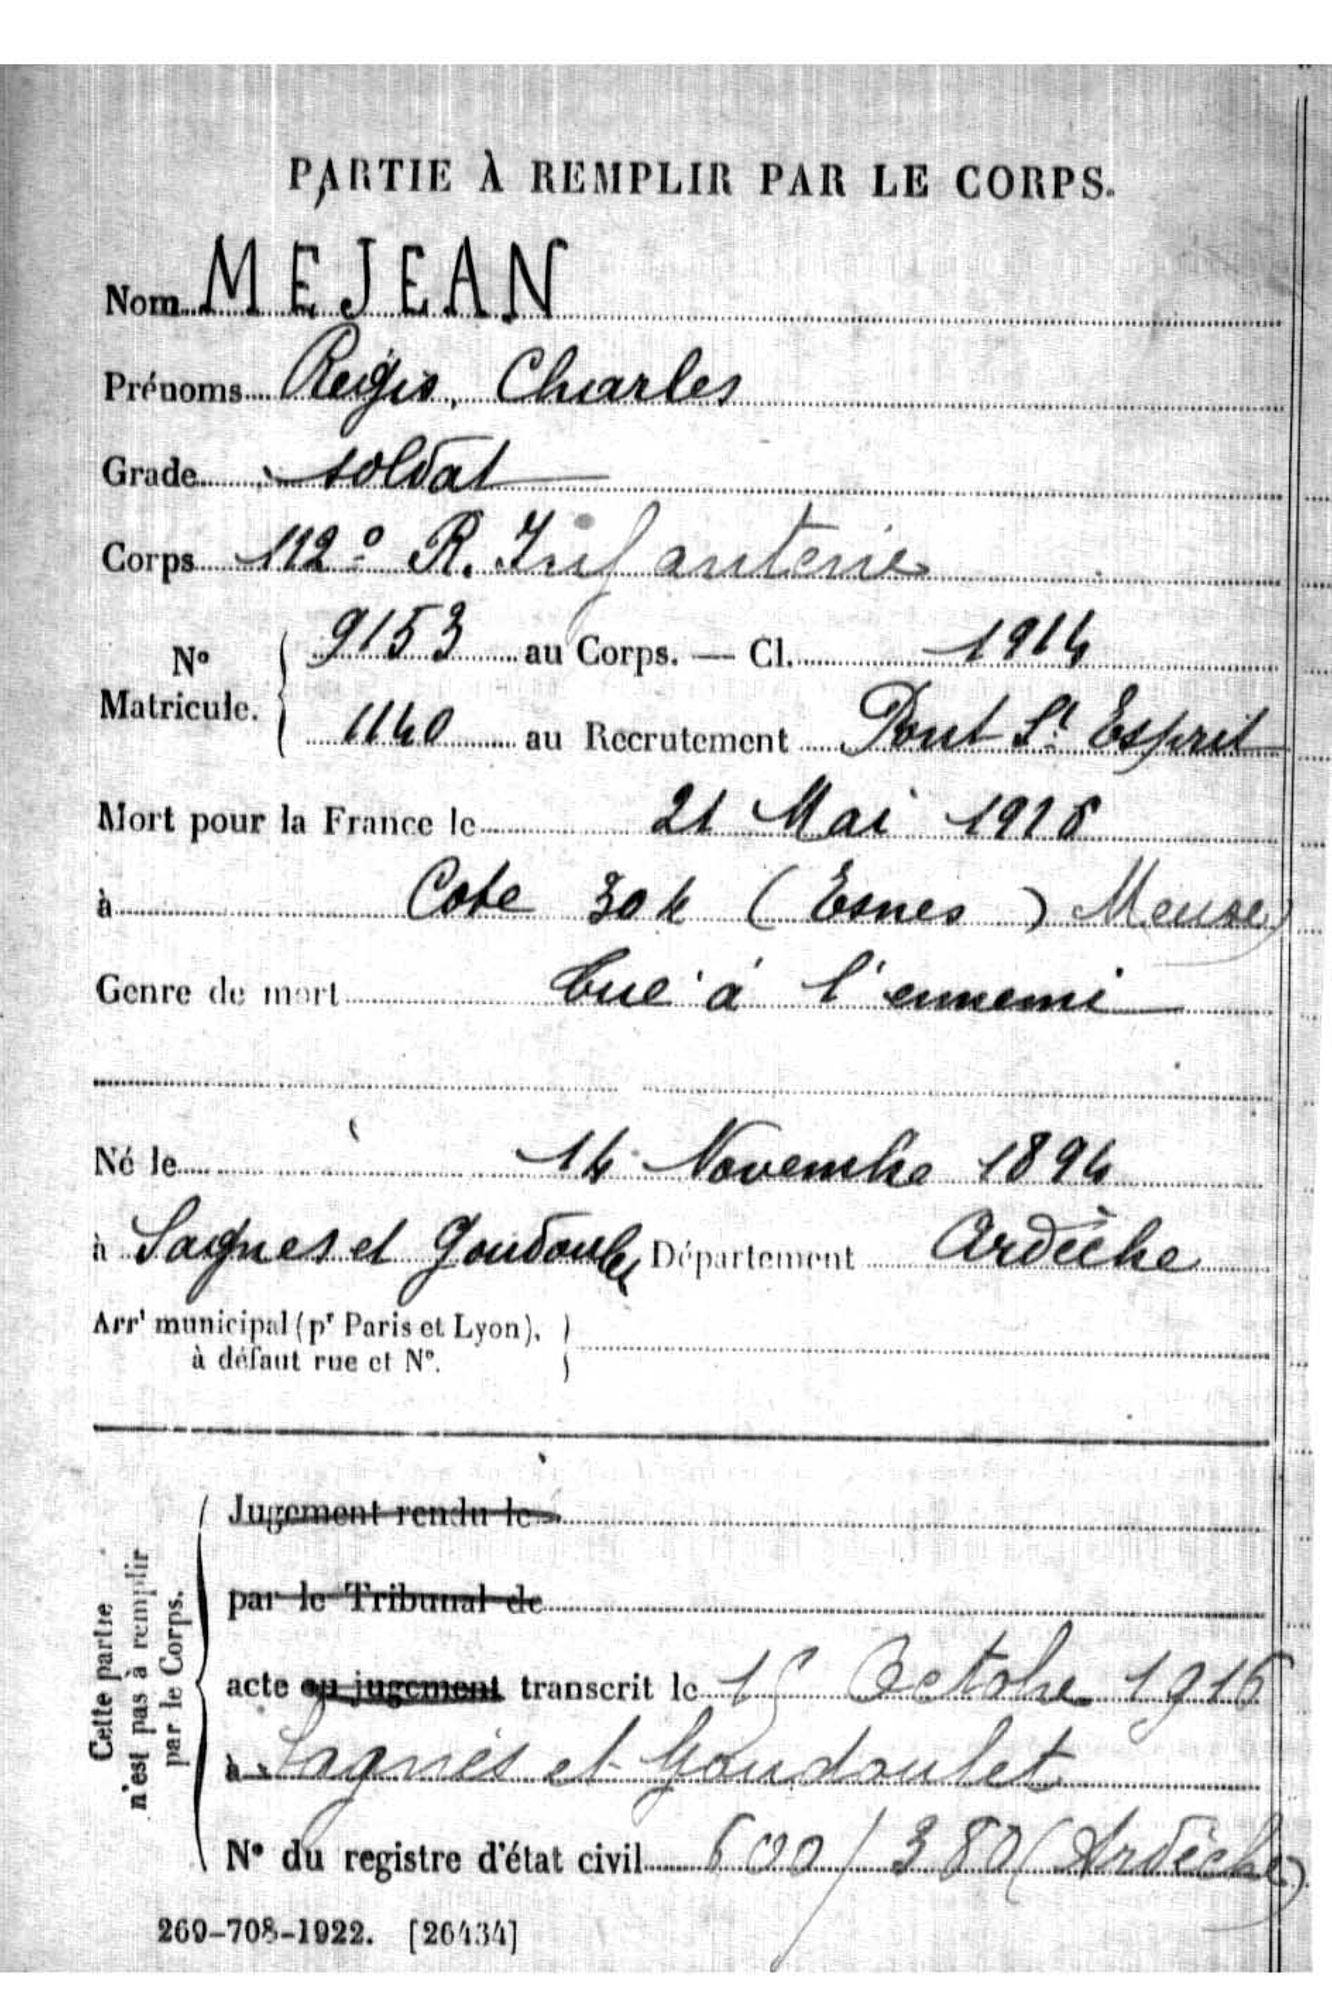 PARTIE À REMPLIR PAR LE CORPS.
Nom MEJEAN
Prénoms Régis, Charles
Grade soldat
Corps 112º R. Infanterie
Nº Matricule. 9153 au Corps. — Cl. 1914
1140 au Recrutement Pont St Esprit
Mort pour la France le 21 Mai 1916
à Cote 304 (Esnes) Meuse)
Genre de mort tué à l'ennemi
Né le 14 Novembre 1894
à Sagnes et Goudoulet Département Ardèche
Arrt municipal (pr Paris et Lyon),
à défaut rue et Nº.
Cette partie
n'est pas à remplir
par le Corps.
Jugement rendu le
par le Tribunal de
acte ou jugement transcrit le 15 Octobre 1916
à Sagnes et Goudoulet
Nº du registre d'état civil 600/380 (Ardèche)
269-708-1922. [26434]